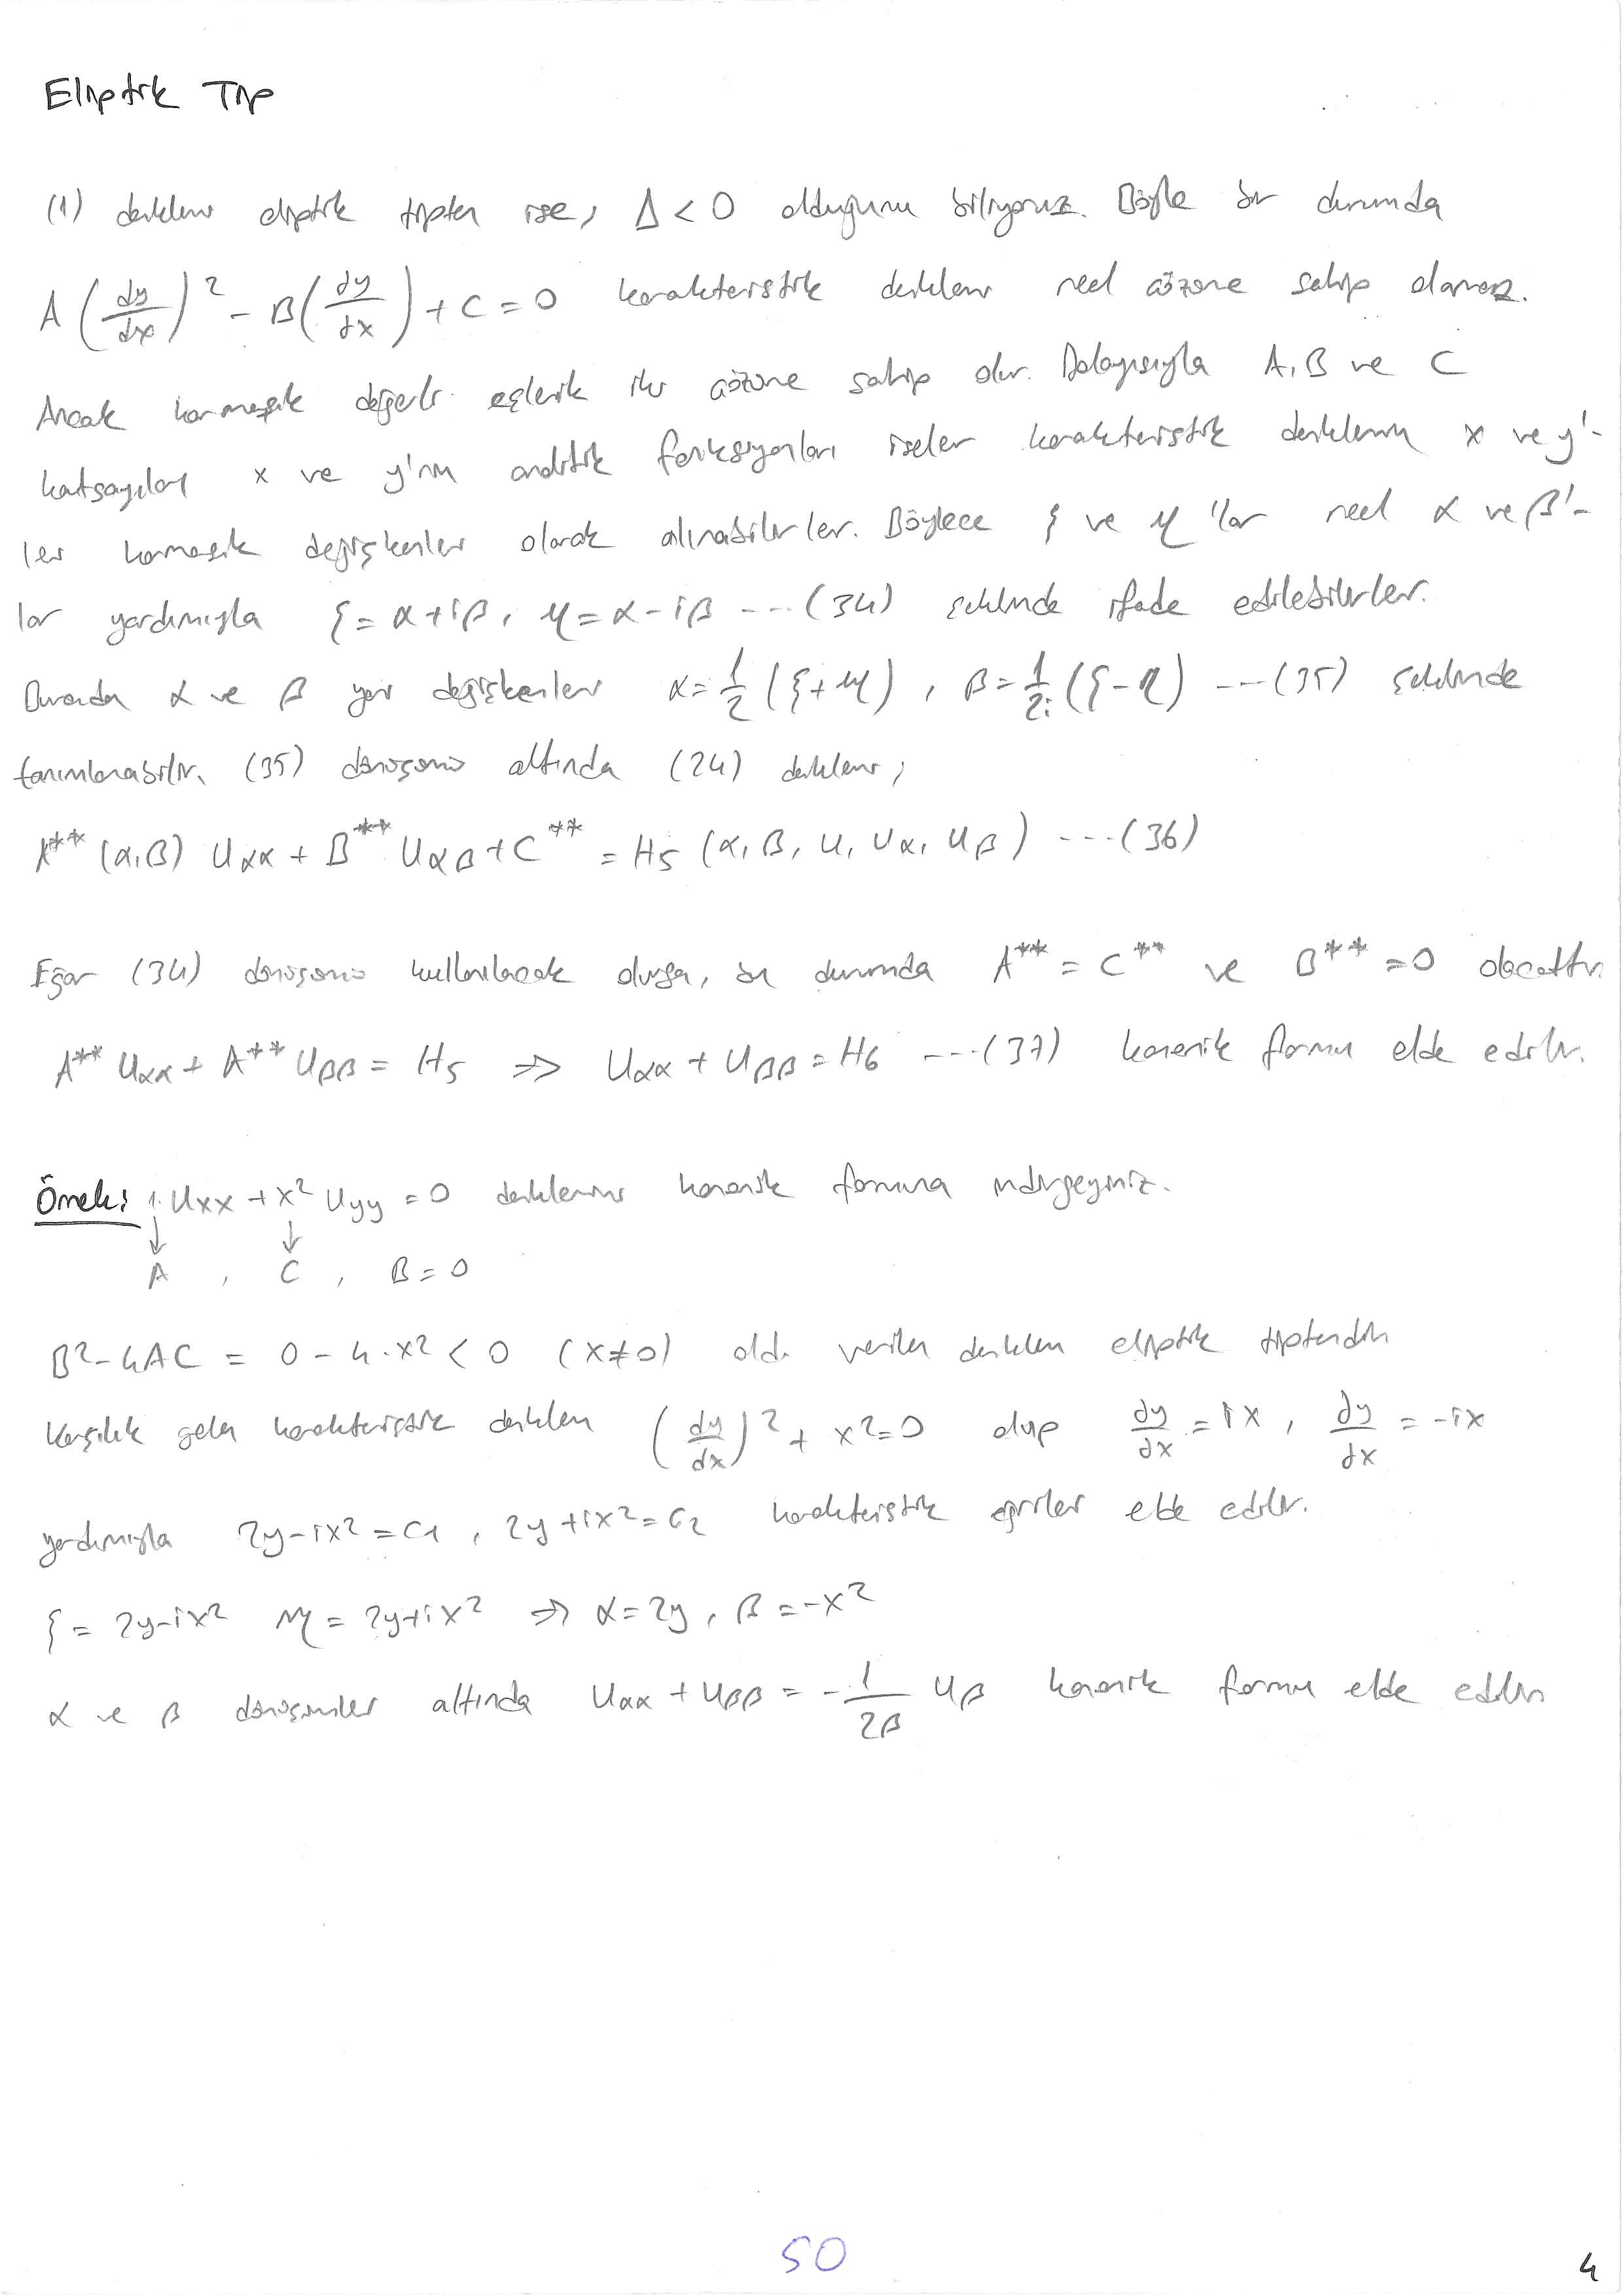 Eliptik Tip
(1) denklemi eliptik tipten ise, Δ < 0 olduğunu biliyoruz. Böyle bir durumda
A (dy/dx)² - B(dy/dx) + C = 0 karakteristik denklemi reel çözüme sahip olamaz.
Ancak karmaşık değerli eşlenik iki çözüme sahip olur. Dolayısıyla A, B ve C
katsayıları x ve y'nin analitik fonksiyonları iseler karakteristik denklemin x ve y'-
ler karmaşık değişkenler olarak alınabilirler. Böylece ξ ve η 'lar reel α ve β'-
lar yardımıyla ξ = α + iβ, η = α - iβ ---(34) şeklinde ifade edilebilirler.
Burada α ve β yeni değişkenleri α = 1/2 (ξ+η), β = 1/2i (ξ-η) ---(35) şeklinde
tanımlanabilir. (35) dönüşümü altında (24) denklemi;
A** (α,β) Uαα + B** Uαβ + C** = H5 (α, β, u, uα, uβ) ---(36)
Eğer (34) dönüşümü kullanılacak olursa, bu durumda A** = C** ve B** = 0 olacaktır.
A** Uαα + A** Uββ = H5 ⇒ Uαα + Uββ = H6 ---(37) kanonik formu elde edilir.
Örnek: 1. Uxx + x² Uyy = 0 denklemini kanonik formuna indirgeyiniz.
↓ ↓
A , C , B = 0
B² - 4AC = 0 - 4.x² < 0 (x≠0) old. verilen denklem eliptik tiptendir
Karşılık gelen karakteristik denklem (dy/dx)² + x² = 0 olup dy/dx = ix, dy/dx = -ix
yardımıyla 2y - ix² = c1, 2y + ix² = c2 karakteristik eğriler elde edilir.
ξ = 2y - ix² η = 2y + ix² ⇒ α = 2y, β = -x²
α ve β dönüşümleri altında Uαα + Uββ = - 1/2β Uβ kanonik formu elde edilir
50
4